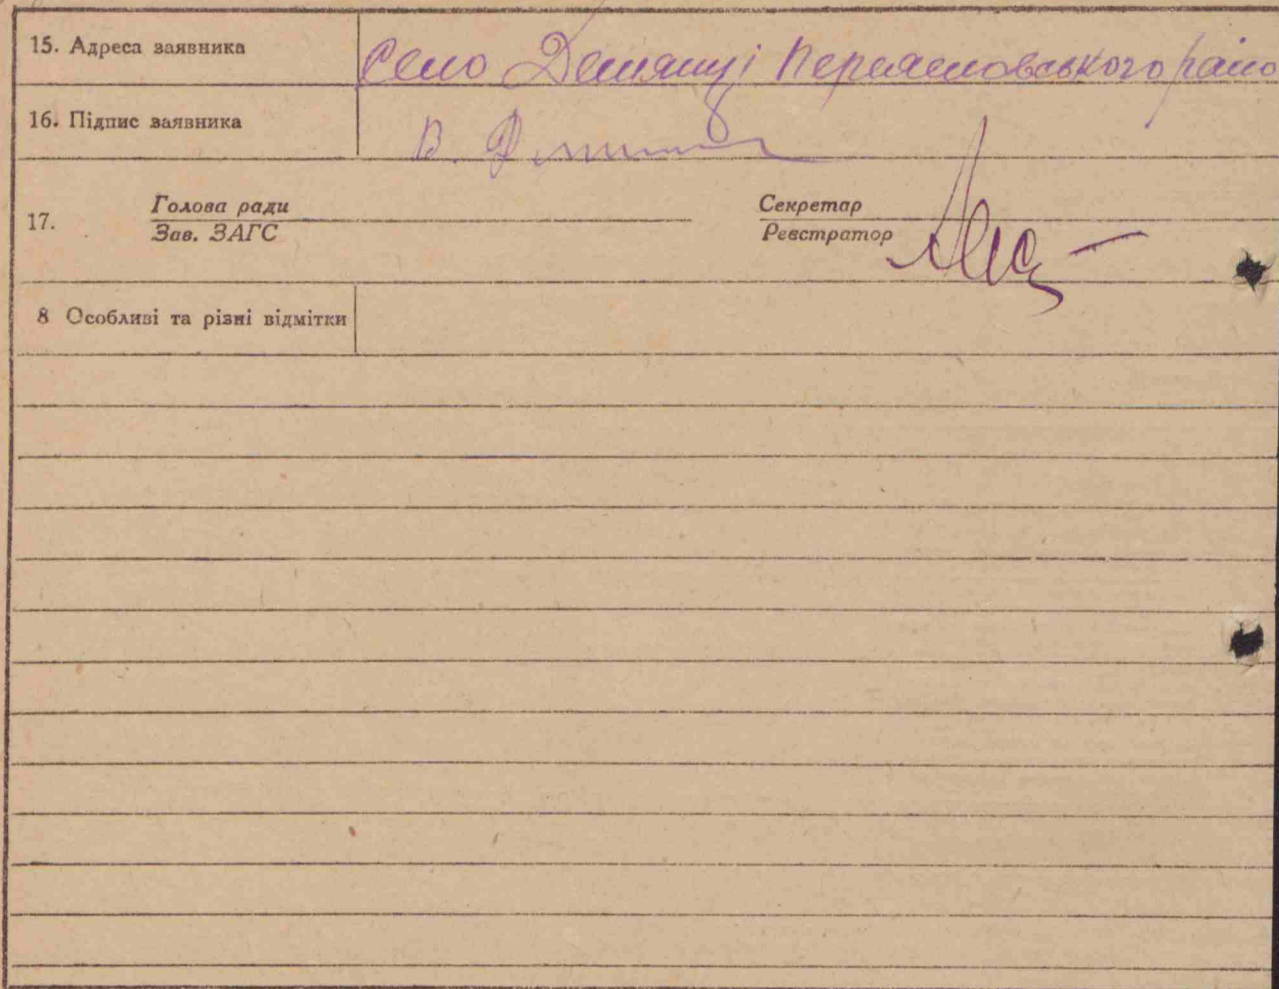 15. Адреса заявника Село Демянці Переяславського райо
16. Підпис заявника В. 
17. Голова ради Секретар
Зав. ЗАГС Реєстратор
8 Особливі та різні відмітки